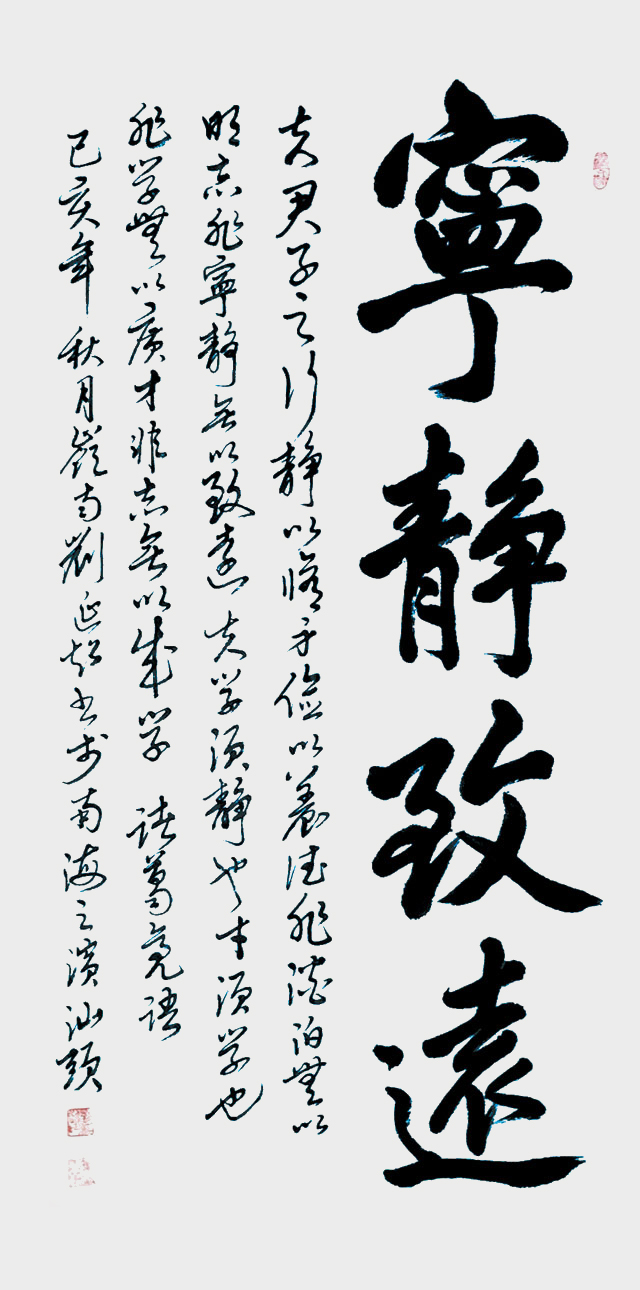 寧靜致遠
夫君子之行靜以脩身儉以養德非澹泊無以
明志非寧靜無以致遠夫學須靜也才須學也
非學無以廣才非志無以成學 諸葛亮語
己亥年秋月嶺南劉延超書於南海之濱汕頭